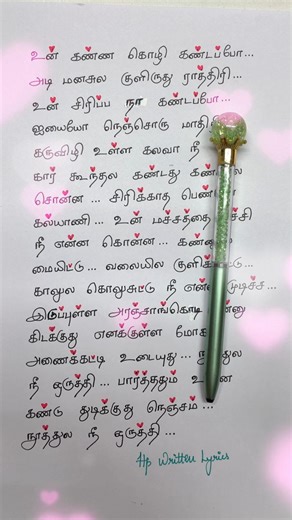 உன் கண்ண கொழி கண்டப்போ...
அடி மனசுல குளிருது ராத்திரி...
உன் சிரிப்ப நா கண்டப்போ...
ஐயையோ நெஞ்சொரு மாதி
கருவிழி உள்ள களவா நீ
கார் கூந்தல கண்டது
சொன்ன... சிரிக்காத
கல்யாணி... உன் மச்சத்தை
நீ என்ன கொன்ன...
மையிட்டு... வலையில
காலுல கொலுசுட்டு நீ
இடுப்புள்ள அரஞ்சாங்கொடி
கிடக்குது எனக்குள்ள மோக
அணைக்கட்டி உடையுது...
நீ ஒருத்தி... பார்த்ததும்
கண்டு துடிக்குது நெஞ்சம்...
நூத்துல நீ ஒருத்தி...
Hp Written Lyrics